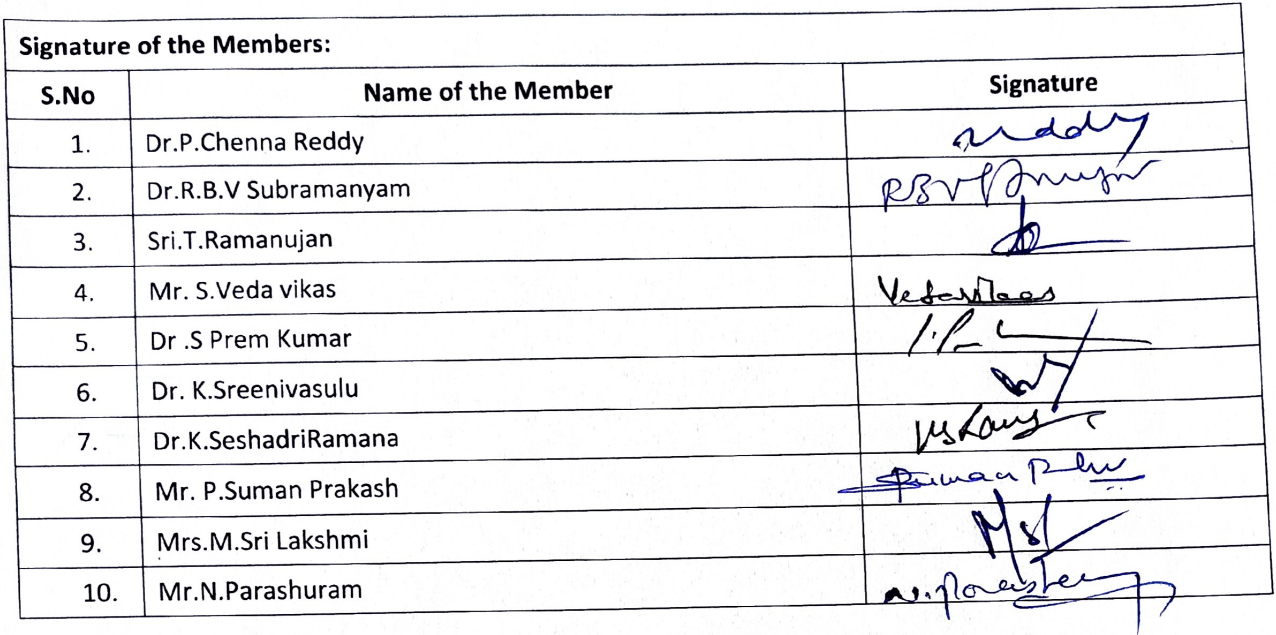 Signature of the Members:
S.No Name of the Member Signature
1. Dr.P.Chenna Reddy reddy
2. Dr.R.B.V Subramanyam
3. Sri.T.Ramanujan
4. Mr. S.Veda vikas Vedavikas
5. Dr .S Prem Kumar
6. Dr. K.Sreenivasulu
7. Dr.K.SeshadriRamana
8. Mr. P.Suman Prakash
9. Mrs.M.Sri Lakshmi
10. Mr.N.Parashuram